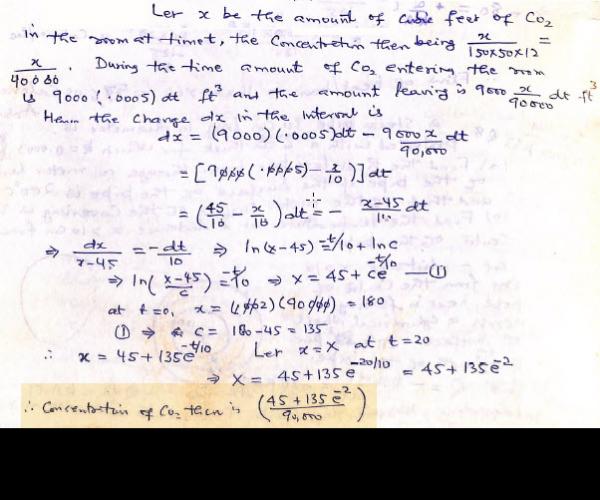 Let x be the amount of cubic feet of CO2
in the room at time t, the Concentration then being x/(150×50×12) =
x/90000 . During the time amount of CO2 entering the room
is 9000 (.0005) dt ft³ and the amount leaving is 9000 x/90000 dt ft³
Hence the change dx in the interval is
dx = (9000) (.0005)dt − 9000x/90,000 dt
= [9000(.0005) − x/10)] dt
= (45/10 − x/10) dt = − (x−45)/10 dt
⇒ dx/(x−45) = −dt/10 ⇒ ln(x−45) = −t/10 + ln c
⇒ ln((x−45)/c) = −t/10 ⇒ x = 45 + ce^(−t/10) — (1)
at t=0, x = (.002)(90000) = 180
(1) ⇒ c = 180−45 = 135
∴ x = 45 + 135e^(−t/10) Let x = X at t=20
⇒ X = 45 + 135 e^(−20/10) = 45 + 135e^(−2)
∴ Concentration of CO2 then is ((45 + 135 e^(−2))/90,000)